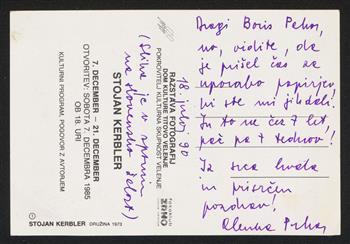 Dragi Boris Pahor,
no, vidite, da
je prišel čas za
uporabo papirjev,
ki ste mi jih dali.
In to ne čez 7 let
pač pa 7 tednov!
Iz srca hvala
in prisrčen
pozdrav!
Alenka Puhar
18. julij 90
(Slika je v spomin
na slovensko žalost)
RAZSTAVA FOTOGRAFIJ
DOM KULTURE TITOVO VELENJE
POKROVITELJ KULTURNA SKUPNOST VELENJE
STOJAN KERBLER
7. DECEMBER — 21. DECEMBER
OTVORITEV: SOBOTA 7. DECEMBRA 1985
OB 18. URI
KULTURNI PROGRAM, POGOVOR Z AVTORJEM
STOJAN KERBLER DRUŽINA 1973